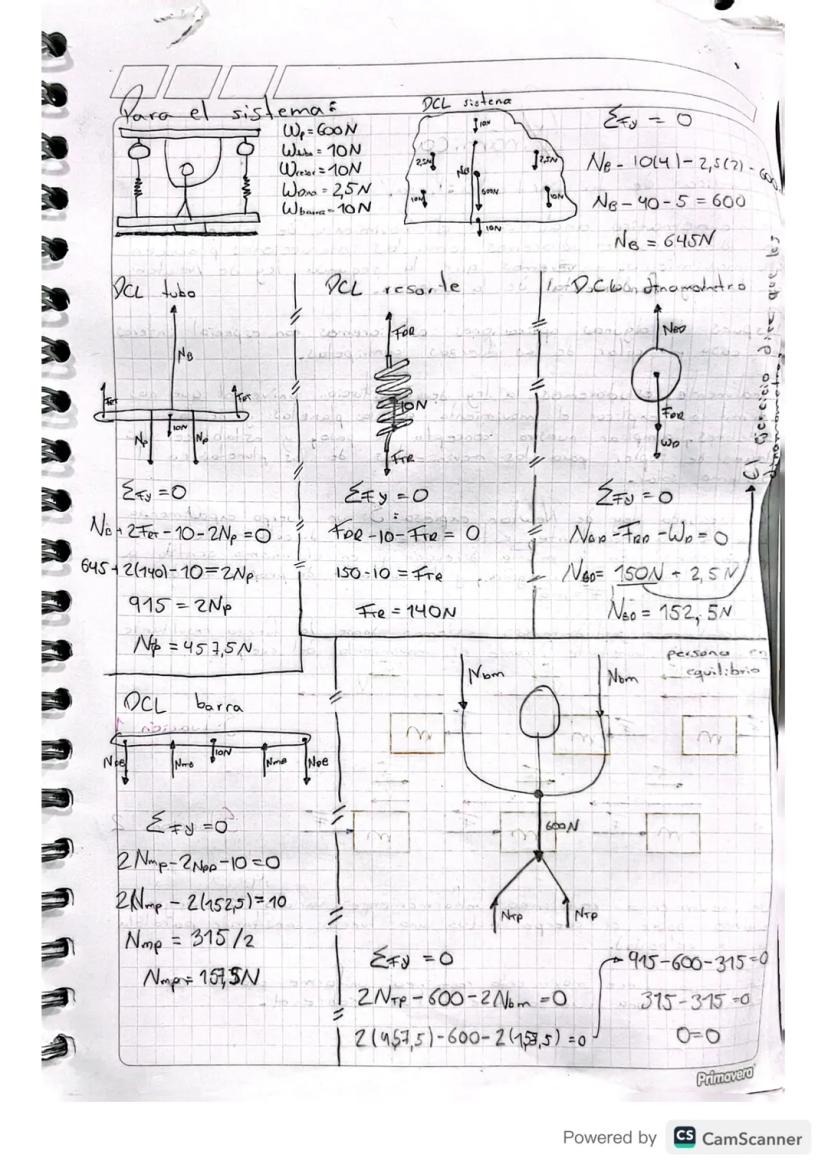 Para el sistema:
Wp = 600N
Wtubo = 10N
Wresor = 10N
WDina = 2,5N
Wbarra = 10N
DCL sistema
10N
2,5N
NB
2,5N
600N
10N
10N
10N
ΣFy = 0
NB - 10(4) - 2,5(2) - 600
NB - 40 - 5 = 600
NB = 645N
DCL tubo
NB
10N
Np
Np
ΣFy = 0
645 + 2(140) - 10 = 2Np
915 = 2Np
Np = 457,5N
DCL resorte
FDR
10N
FTR
ΣFy = 0
FDR - 10 - FTR = 0
150 - 10 = FTR
FTR = 140N
DCL dinamometro
NBD
FDR
WD
ΣFy = 0
NBD - FRD - WD = 0
NBD = 150N + 2,5N
NBD = 152,5N
El ejercicio dice que los
dinamometros
DCL barra
10N
ΣFy = 0
2Nmp - 2NDB - 10 = 0
2Nmp - 2(152,5) = 10
Nmp = 315/2
Nmp = 157,5N
persona en
equilibrio
Nbm
Nbm
600N
NTP
NTP
ΣFy = 0
2NTP - 600 - 2Nbm = 0
2(457,5) - 600 - 2(157,5) = 0
915 - 600 - 315 = 0
315 - 315 = 0
0 = 0
Primavera
Powered by CS CamScanner